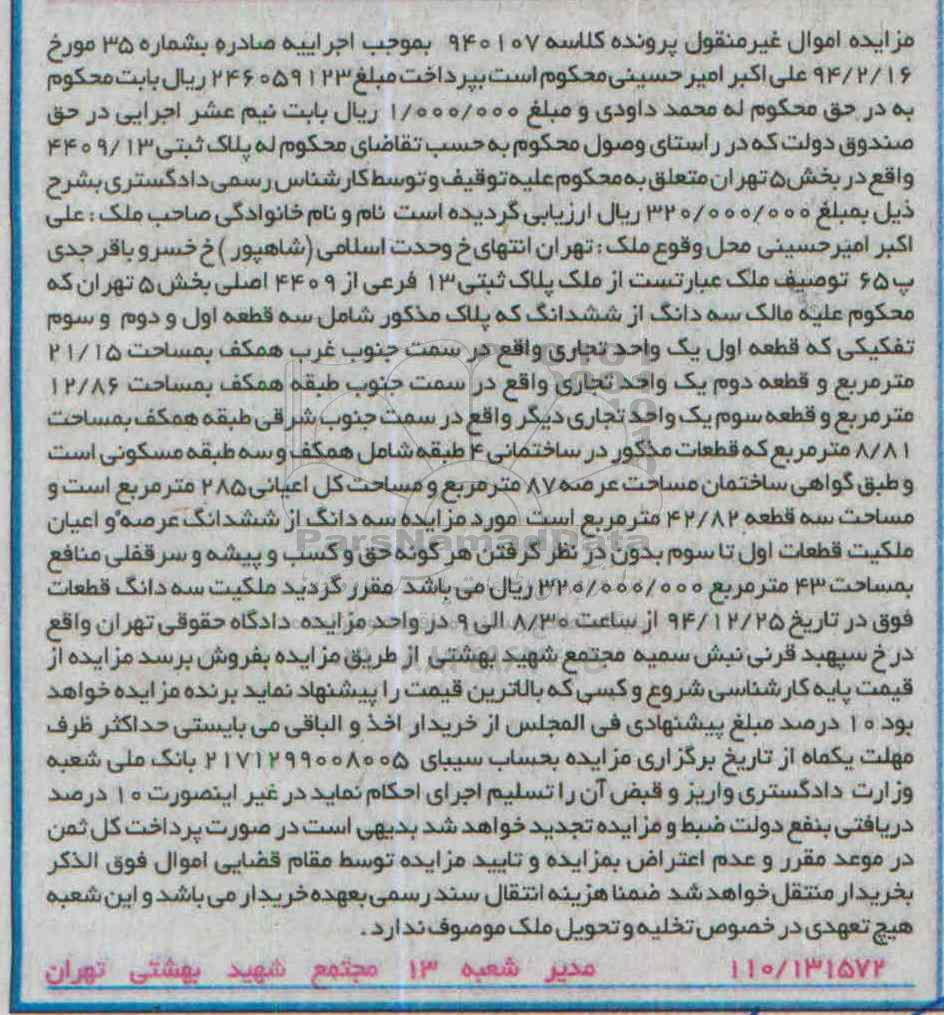 مزایده اموال غیرمنقول پرونده کلاسه ۹۴۰۱۰۷ بموجب اجراییه صادره بشماره ۳۵ مورخ
۹۴/۲/۱۶ علی اکبر امیرحسینی محکوم است بپرداخت مبلغ ۲۴۶۰۵۹۱۲۳ ریال بابت محکوم
به در حق محکوم له محمد داودی و مبلغ ۱/۰۰۰/۰۰۰ ریال بابت نیم عشر اجرایی در حق
صندوق دولت که در راستای وصول محکوم به حسب تقاضای محکوم له پلاک ثبتی ۴۴۰۹/۱۳
واقع در بخش ۵ تهران متعلق به محکوم علیه توقیف و توسط کارشناس رسمی دادگستری بشرح
ذیل بمبلغ ۳۲۰/۰۰۰/۰۰۰ ریال ارزیابی گردیده است نام و نام خانوادگی صاحب ملک : علی
اکبر امیرحسینی محل وقوع ملک : تهران انتهای خ وحدت اسلامی (شاهپور ) خ خسرو باقر جدی
پ ۶۵ توصیف ملک عبارتست از ملک پلاک ثبتی ۱۳ فرعی از ۴۴۰۹ اصلی بخش ۵ تهران که
محکوم علیه مالک سه دانگ از ششدانگ که پلاک مذکور شامل سه قطعه اول و دوم و سوم
تفکیکی که قطعه اول یک واحد تجاری واقع در سمت جنوب غرب همکف بمساحت ۲۱/۱۵
مترمربع و قطعه دوم یک واحد تجاری واقع در سمت جنوب طبقه همکف بمساحت ۱۲/۸۶
مترمربع و قطعه سوم یک واحد تجاری دیگر واقع در سمت جنوب شرقی طبقه همکف بمساحت
۸/۸۱ مترمربع که قطعات مذکور در ساختمانی ۴ طبقه شامل همکف و سه طبقه مسکونی است
و طبق گواهی ساختمان مساحت عرصه ۸۷ مترمربع و مساحت کل اعیانی ۲۸۵ مترمربع است و
مساحت سه قطعه ۴۲/۸۲ مترمربع است مورد مزایده سه دانگ از ششدانگ عرصه و اعیان
ParsNamadData
ملکیت قطعات اول تا سوم بدون در نظر گرفتن هر گونه حق و کسب و پیشه و سرقفلی منافع
بمساحت ۴۳ مترمربع ۳۲۰/۰۰۰/۰۰۰ ریال می باشد مقرر گردید ملکیت سه دانگ قطعات
فوق در تاریخ ۹۴/۱۲/۲۵ از ساعت ۸/۳۰ الی ۹ در واحد مزایده دادگاه حقوقی تهران واقع
در خ سپهبد قرنی نبش سمیه مجتمع شهید بهشتی از طریق مزایده بفروش برسد مزایده از
قیمت پایه کارشناسی شروع و کسی که بالاترین قیمت را پیشنهاد نماید برنده مزایده خواهد
بود ۱۰ درصد مبلغ پیشنهادی فی المجلس از خریدار اخذ و الباقی می بایستی حداکثر ظرف
مهلت یکماه از تاریخ برگزاری مزایده بحساب سیبای ۲۱۷۱۲۹۹۰۰۸۰۰۵ بانک ملی شعبه
وزارت دادگستری واریز و قبض آن را تسلیم اجرای احکام نماید در غیر اینصورت ۱۰ درصد
دریافتی بنفع دولت ضبط و مزایده تجدید خواهد شد بدیهی است در صورت پرداخت کل ثمن
در موعد مقرر و عدم اعتراض بمزایده و تایید مزایده توسط مقام قضایی اموال فوق الذکر
بخریدار منتقل خواهد شد ضمنا هزینه انتقال سند رسمی بعهده خریدار می باشد و این شعبه
هیچ تعهدی در خصوص تخلیه و تحویل ملک موصوف ندارد .
۱۱۰/۱۳۱۵۷۲ مدیر شعبه ۱۳ مجتمع شهید بهشتی تهران